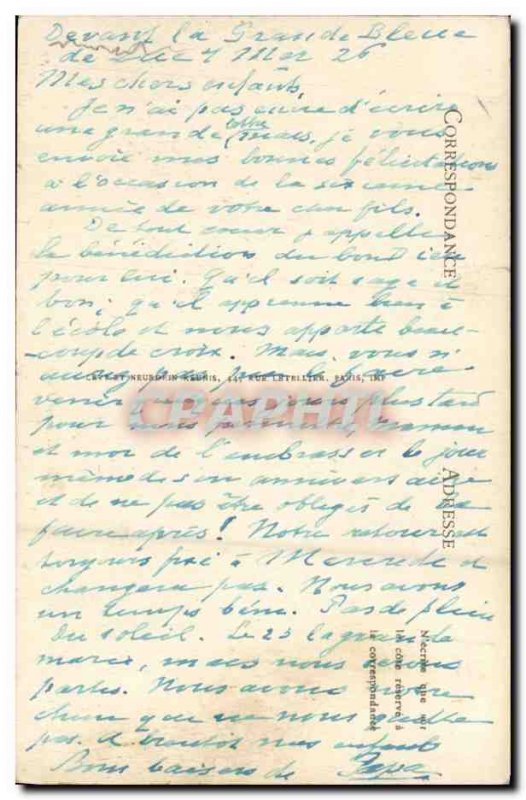 Devant la Grande Bleue
de 4 Mer 26
Mes chers enfants,
Je n'ai pas envie d'écrire
une grande lettre mais, je vous
envoie mes bonnes félicitations
à l'occasion de la sixième
année de votre cher fils.
De tout coeur j'appelle
la bénédiction du bon
pour lui. Qu'il soit sage et
bon, qu'il apprenne bien à
l'école et nous apporte beau-
coup de croix. Mais, vous n'
pas pu le faire
venir plus tard
pour maman
et moi de l'embrasser le jour
même de son anniversaire
et de ne pas être obligés de le
faire après! Notre retour est
toujours fixé à Mercredi et
changera pas. Nous avons
un temps béni. Pas de pluie
du soleil. Le 23 la grande
marée, mais nous serons
partis. Nous avons notre
que ne nous quitte
pas. A bientôt mes enfants
Bons baisers de Papa
CORRESPONDANCE
ADRESSE
N'écrire que sur
le côté réservé à
la correspondance
LEVY ET NEURDEIN REUNIS, 44, RUE LETELLIER, PARIS, IMP
CPAPHIL